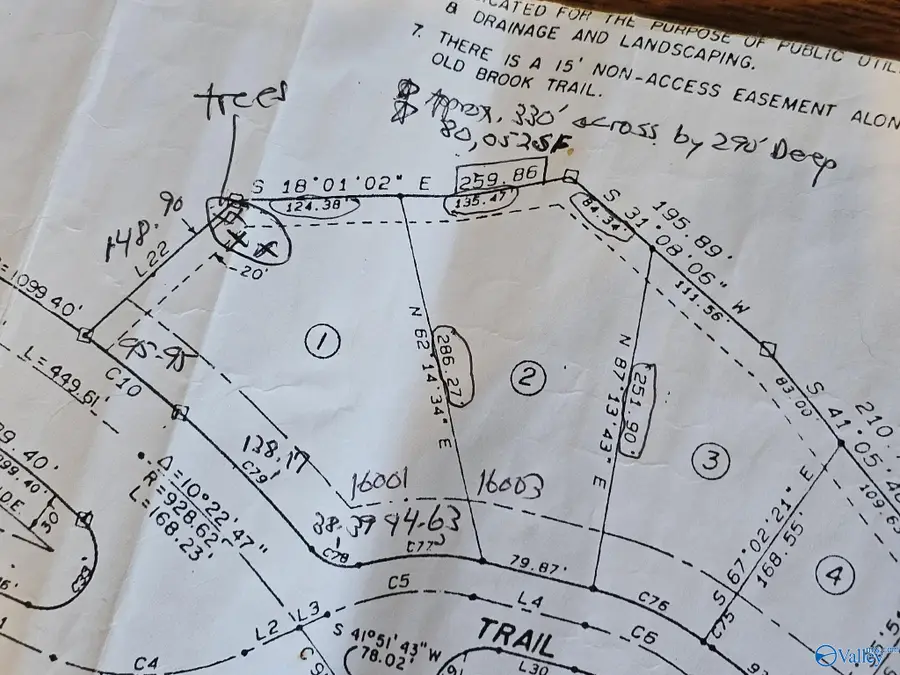 CATED FOR THE PURPOSE OF PUBLIC UTIL
& DRAINAGE AND LANDSCAPING.
7. THERE IS A 15' NON-ACCESS EASEMENT ALON
OLD BROOK TRAIL.
trees
Aprox. 330' across by 290' Deep
80,052SF.
S 18°01'02" E 259.86
124.38' 135.47'
84.34'
S 31°08'05" W
195.89'
111.56'
90
148'
L22
20'
1099.40'
195.95
C10
L=449.61'
1
N 62°14'34" E
286.27'
2
N 87°13'43" E
251.90'
3
83.00
S 41°05'4
210.
109.6
S 67°02'21" E
168.55'
4
138.17
C79
Δ=10°22'47"
R=928.62'
L=168.23'
16001
16003
38.39 94.63
C78
C77
79.87'
C76
C75
C5
L4
C6
L2
L3
C4
S 41°51'43"W
78.02'
TRAIL
L30
Valley